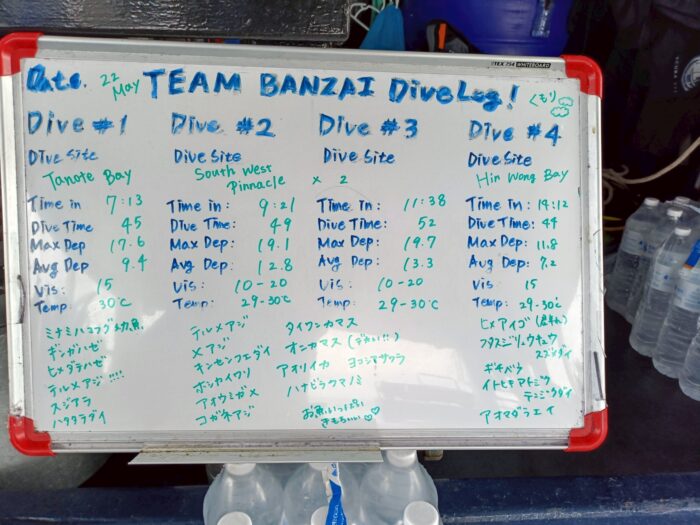 Date. 22 May TEAM BANZAI Dive Log! くもり
Dive #1
Dive Site
Tanote Bay
Time in 7:13
Dive Time 45
Max Dep 17.6
Avg Dep 9.4
Vis: 15
Temp: 30℃
ミナミハコフグ幼魚
ギンガハゼ
ヒメダテハゼ
テルメアジ !!!!
スジアラ
ハタタテダイ
Dive #2
Dive Site
South West Pinnacle × 2
Time in: 9:21
Dive Time: 49
Max Dep: 19.1
Avg Dep: 12.8
Vis: 10-20
Temp: 29-30℃
テルメアジ
メアジ
キンセンフエダイ
ホシカイワリ
アオウミガメ
コガネアジ
Dive #3
Dive Site
Time in: 11:38
Dive Time: 52
Max Dep: 19.7
Avg Dep: 13.3
Vis: 10-20
Temp: 29-30℃
タイワンカマス
オニカマス (デカい!!)
アオリイカ ヨコシマサワラ
ハナビラクマノミ
お魚いっぱい
きもちいい♡
Dive #4
Dive Site
Hin Wong Bay
Time in: 14:12
Dive Time: 44
Max Dep: 11.8
Avg Dep: 7.2
Vis: 15
Temp: 29-30℃
ヒメアイゴ
フタスジリュウキュウ
スズメダイ
ギチベラ
イトヒキアトミゾ
テンジクダイ
アオマダラエイ
WHITEBOARD